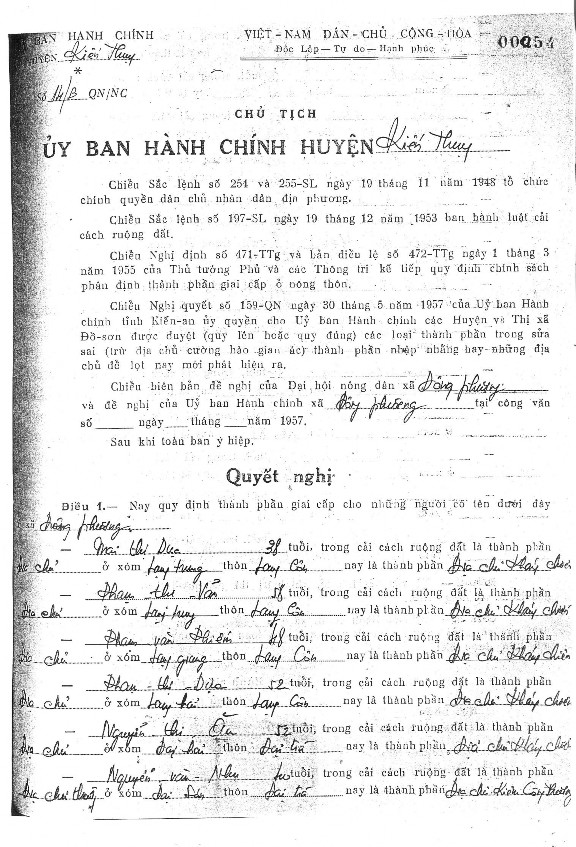 BAN HÀNH CHÍNH
HUYỆN Kiến Thụy
*
Số 14/B QN/NC
VIỆT-NAM DÂN-CHỦ CỘNG-HÒA
Độc Lập — Tự do — Hạnh phúc
000254
CHỦ TỊCH
ỦY BAN HÀNH CHÍNH HUYỆN Kiến Thụy
Chiếu Sắc lệnh số 254 và 255-SL ngày 19 tháng 11 năm 1948 tổ chức
chính quyền dân chủ nhân dân địa phương.
Chiếu Sắc lệnh số 197-SL ngày 19 tháng 12 năm 1953 ban hành luật cải
cách ruộng đất.
Chiếu Nghị định số 471-TTg và bản điều lệ số 472-TTg ngày 1 tháng 3
năm 1955 của Thủ tướng Phủ và các Thông tri kế tiếp quy định chính sách
phân định thành phần giai cấp ở nông thôn.
Chiếu Nghị quyết số 159-QN ngày 30 tháng 5 năm 1957 của Uỷ ban Hành
chính tỉnh Kiến-an ủy quyền cho Uỷ ban Hành chính các Huyện và Thị xã
Đồ-sơn được duyệt (quy lên hoặc quy đúng) các loại thành phần trong sửa
sai (trừ địa chủ cường hào gian ác) thành phần nhập nhằng hay những địa
chủ để lọt nay mới phát hiện ra.
Chiếu biên bản đề nghị của Đại hội nông dân xã Đông phương
và đề nghị của Uỷ ban Hành chính xã Đông phương tại công văn
số ngày tháng năm 1957.
Sau khi toàn ban ý hiệp.
Quyết nghị
Điều 1.— Nay quy định thành phần giai cấp cho những người có tên dưới đây
xã Đông phương
— Mai thị Dưa 38 tuổi, trong cải cách ruộng đất là thành phần
Địa chủ ở xóm trung thôn Lạng Côn nay là thành phần Địa chủ Kháng chiến
— Phạm thị Vấn 58 tuổi, trong cải cách ruộng đất là thành phần
Địa chủ ở xóm trung thôn Lạng Côn nay là thành phần Địa chủ Kháng chiến
— Phạm văn 48 tuổi, trong cải cách ruộng đất là thành phần
Địa chủ ở xóm giang thôn Lạng Côn nay là thành phần Địa chủ Kháng chiến
— thị Dưa 52 tuổi, trong cải cách ruộng đất là thành phần
Địa chủ ở xóm hai thôn Lạng Côn nay là thành phần Địa chủ Kháng chiến
— Nguyễn thị 52 tuổi, trong cải cách ruộng đất là thành phần
Địa chủ ở xóm hai thôn Đại trà nay là thành phần Địa chủ Kháng chiến
— Nguyễn văn Nhu tuổi, trong cải cách ruộng đất là thành phần
Địa chủ thường ở xóm thôn Đại trà nay là thành phần Địa chủ Kiêm Công thương